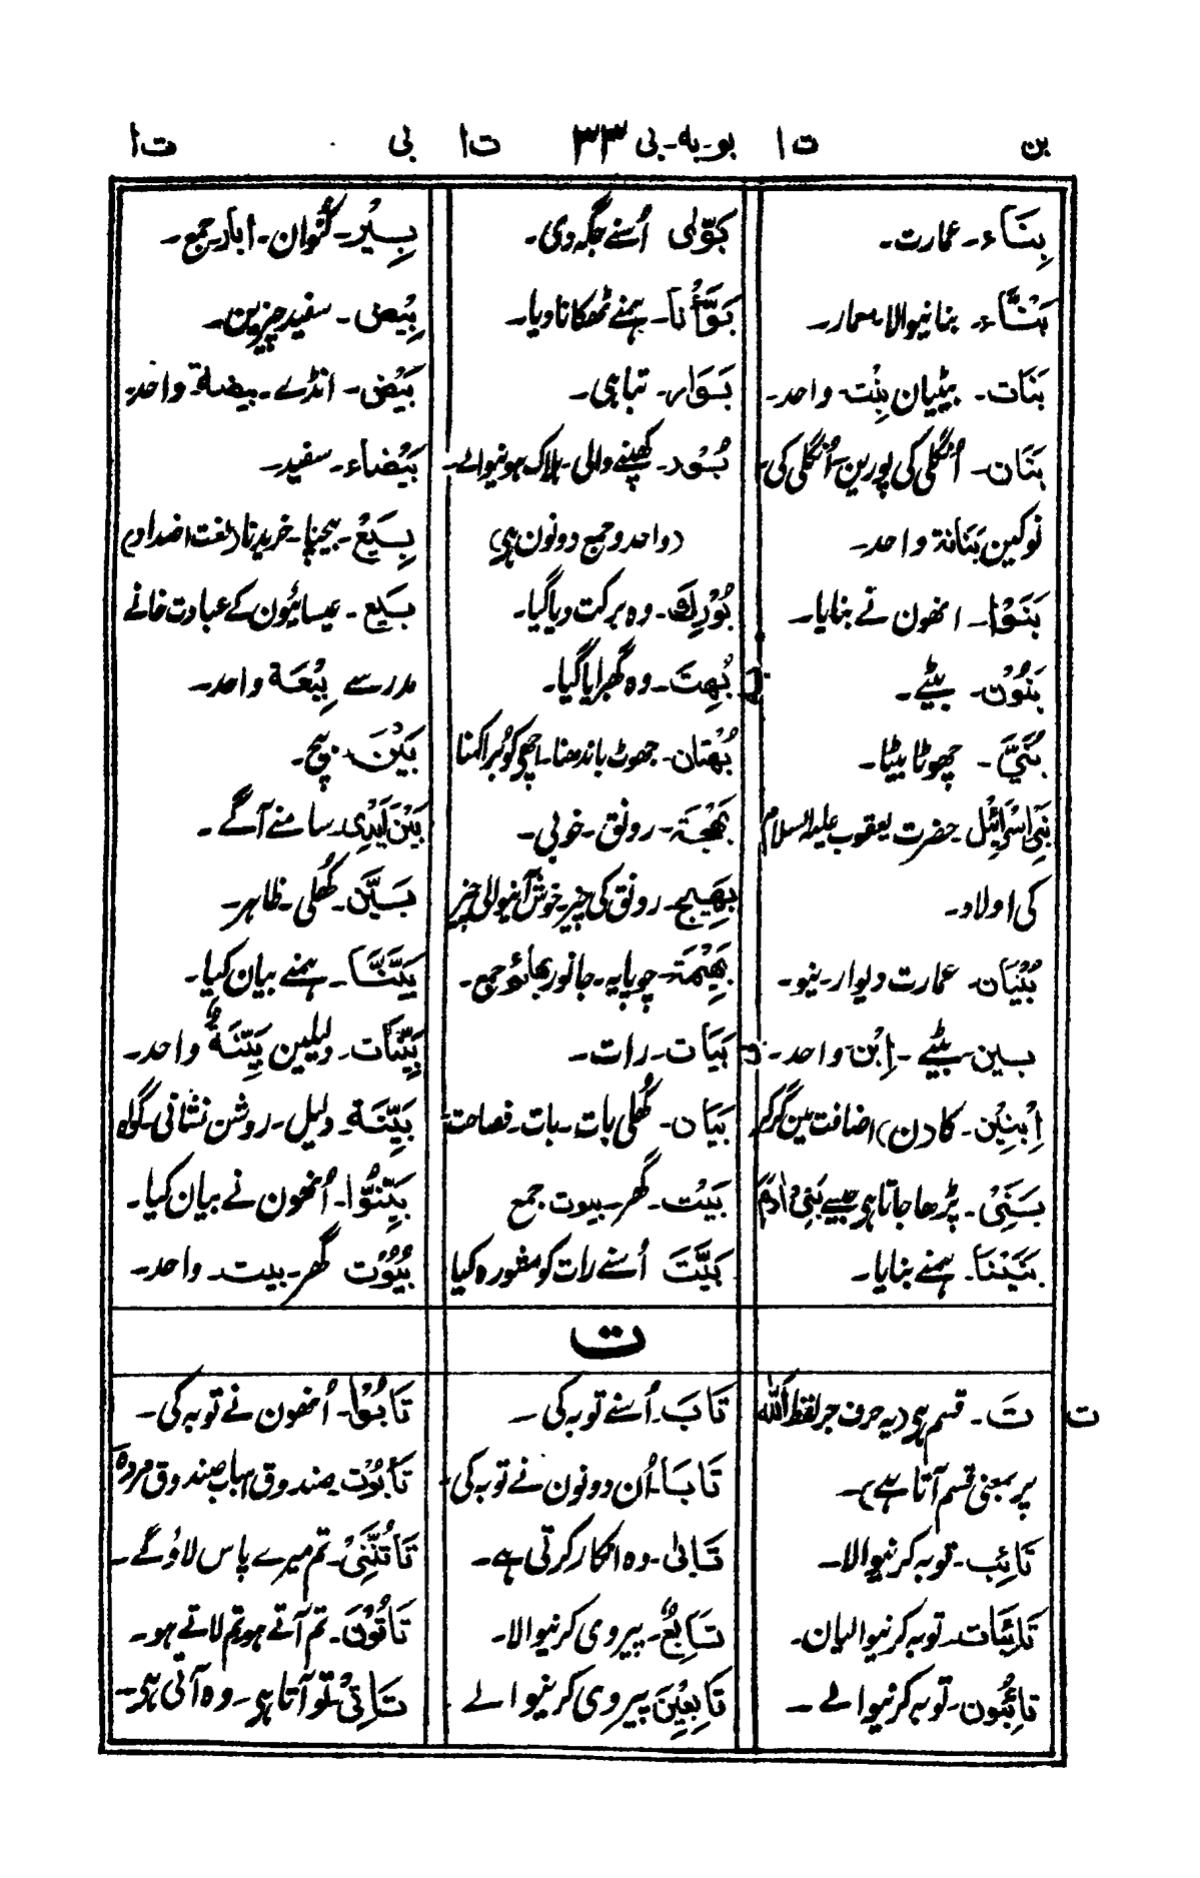 بن ت ا بو-بہ-بی ۳۳ ت ا بی ت ا
بِنَاء۔ عمارت۔
بَنَّاء۔ بنانیوالا معمار۔
بَنَات۔ بیٹیان بِنْت۔ واحد۔
بَنَان۔ اُنگلی کی پورین۔ اُنگلی کی
نوکین بَنَانة واحد۔
بَنَوْا۔ انھون نے بنایا۔
بَنُوْن۔ بیٹے۔
بُنَیَّ۔ چھوٹا بیٹا۔
بَنِیْ اِسْرَائِیْل حضرت یعقوب علیہ السلام
کی اولاد۔
بُنْیَان۔ عمارت دیوار۔ نیو۔
بنین۔ بیٹے۔ اِبْن واحد۔
اِبْنِیْن۔ کا (ن) اضافت مین گر کر
بَنِیْ۔ پڑھا جاتا ہی جیسے بَنِیْ اٰدَمَ
بَنَیْنَا۔ ہمنے بنایا۔
بَوَّلی اُسنے جگہ دی۔
بَوَّأْنَا۔ ہمنے ٹھکانا دیا۔
بَوَار۔ تباہی۔
بُوْر۔ کھپنے والی۔ ہلاک ہونیوالے۔
(واحد و جمع دونون ہی)
بُوْرِكَ۔ وہ برکت دیا گیا۔
بُهِتَ۔ وہ گھبرایا گیا۔
بُهْتَان۔ جھوٹ باندھنا۔ اچھی کو بُرا کہنا
بَهْجَة۔ رونق۔ خوبی۔
بَهِیْج۔ رونق کی چیز۔ خوش آنیوالی چیز
بَهِیْمَة۔ چوپایہ۔ جانور بهائم جمع۔
بَیَات۔ رات۔
بَیَان۔ کُھلی بات۔ بات۔ فصاحت۔
بَیْت۔ گھر۔ بیوت جمع
بَیَّتَ اُسنے رات کو مشورہ کیا
بِئْر۔ کُنوان۔ ابار۔ جمع۔
بِیْض۔ سفید چیزین۔
بَیْض۔ انڈے۔ بیضة واحد۔
بَیْضَاء۔ سفید۔
بَیْعُ۔ بیچنا۔ خریدنا (لغت اضداد)
بِیَع۔ عیسائیون کے عبادت خانے
مدرسے بِیْعَة واحد۔
بَیْنَ۔ بیچ۔
بَیْنَ اَیْدِی۔ سامنے آگے۔
بَیِّن۔ کُھلی۔ ظاہر۔
بَیَّنَّا۔ ہمنے بیان کیا۔
بَیِّنَات۔ دلیلین بَیِّنَةٌ واحد۔
بَیِّنَة۔ دلیل۔ روشن نشانی۔ گواہ
بَیَّنُوْا۔ اُنھون نے بیان کیا۔
بُیُوْت گھر۔ بیت۔ واحد۔
ت
ت
تَ۔ قسم ہی (یہ حرف جر لفظ اَللّٰه
پر بمعنی قسم آتا ہے)۔
تَائِب۔ توبہ کرنیوالا۔
تَائِبَات۔ توبہ کرنیوالیان۔
تَائِبُون۔ توبہ کرنیوالے۔
تَابَ۔ اُسنے توبہ کی۔
تَابَا۔ اُن دونون نے توبہ کی۔
تَابٰی۔ وہ انکار کرتی ہے۔
تَابِعٌ۔ پیروی کرنیوالا۔
تَابِعِیْنَ پیروی کرنیوالے
تَابُوْا۔ اُنھون نے توبہ کی۔
تَابُوْت۔ صندوق اسباب صندوق مردہ
تَاْتُنَّنِیْ۔ تم میرے پاس لاؤ گے۔
تَاْتُوْنَ۔ تم آتے ہو تم لاتے ہو۔
تَاْتِیْ۔ تو آتا ہی۔ وہ آتی ہی۔